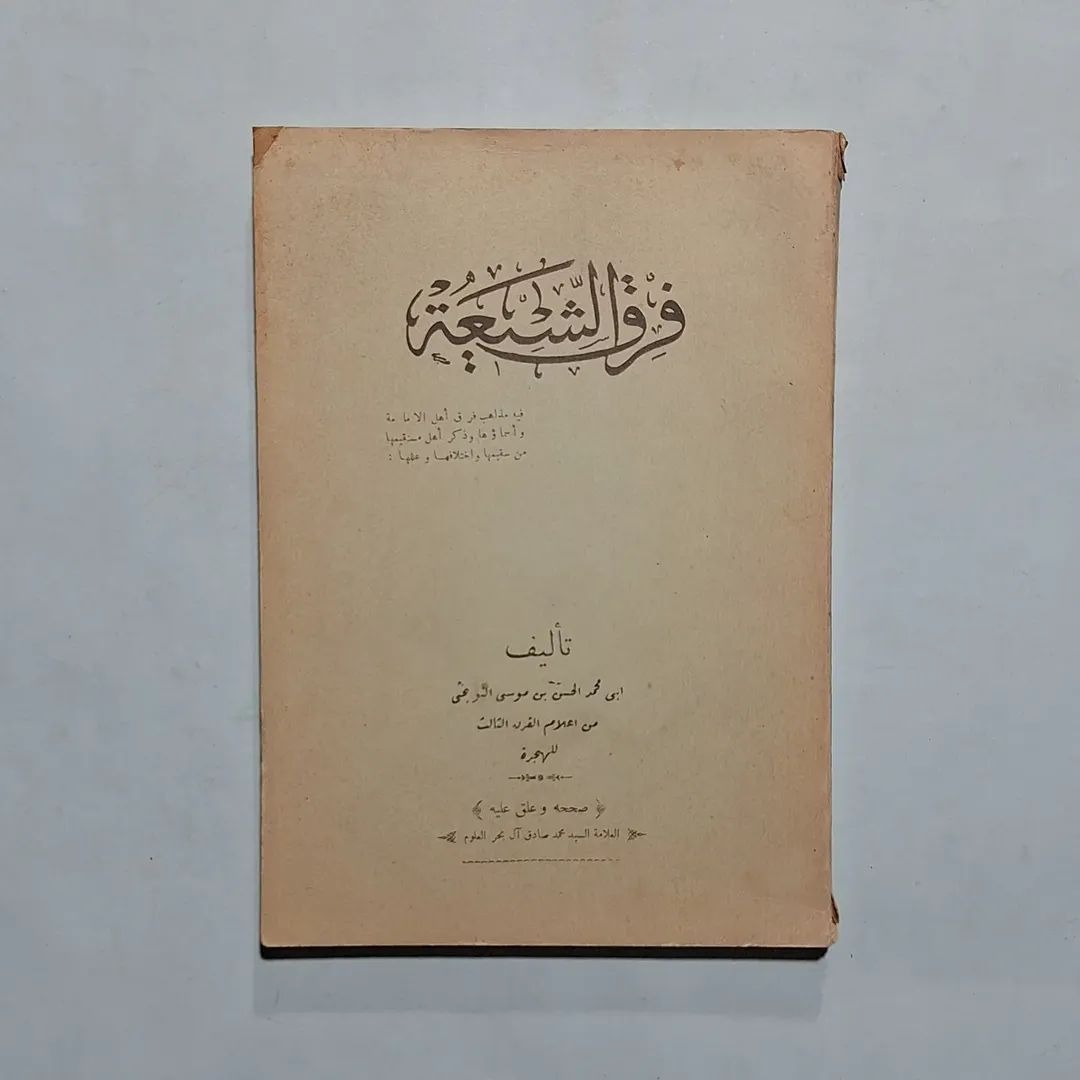 فِرَقُ الشِّيعَةِ
فيه مذاهب فرق أهل الامامة
وأسماؤها وذكر أهل مستقيمها
من سقيمها واختلافها وعللها :
تأليف
ابى محمد الحسن بن موسى النوبختى
من اعلام القرن الثالث
للهجرة
﴿ صححه وعلق عليه ﴾
العلامة السيد محمد صادق آل بحر العلوم